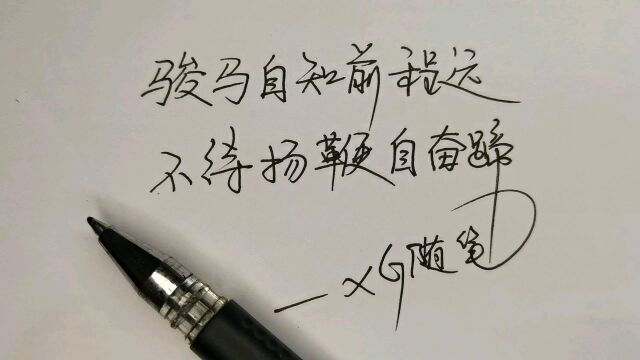 骏马自知前程远
不待扬鞭自奋蹄
—XG随笔